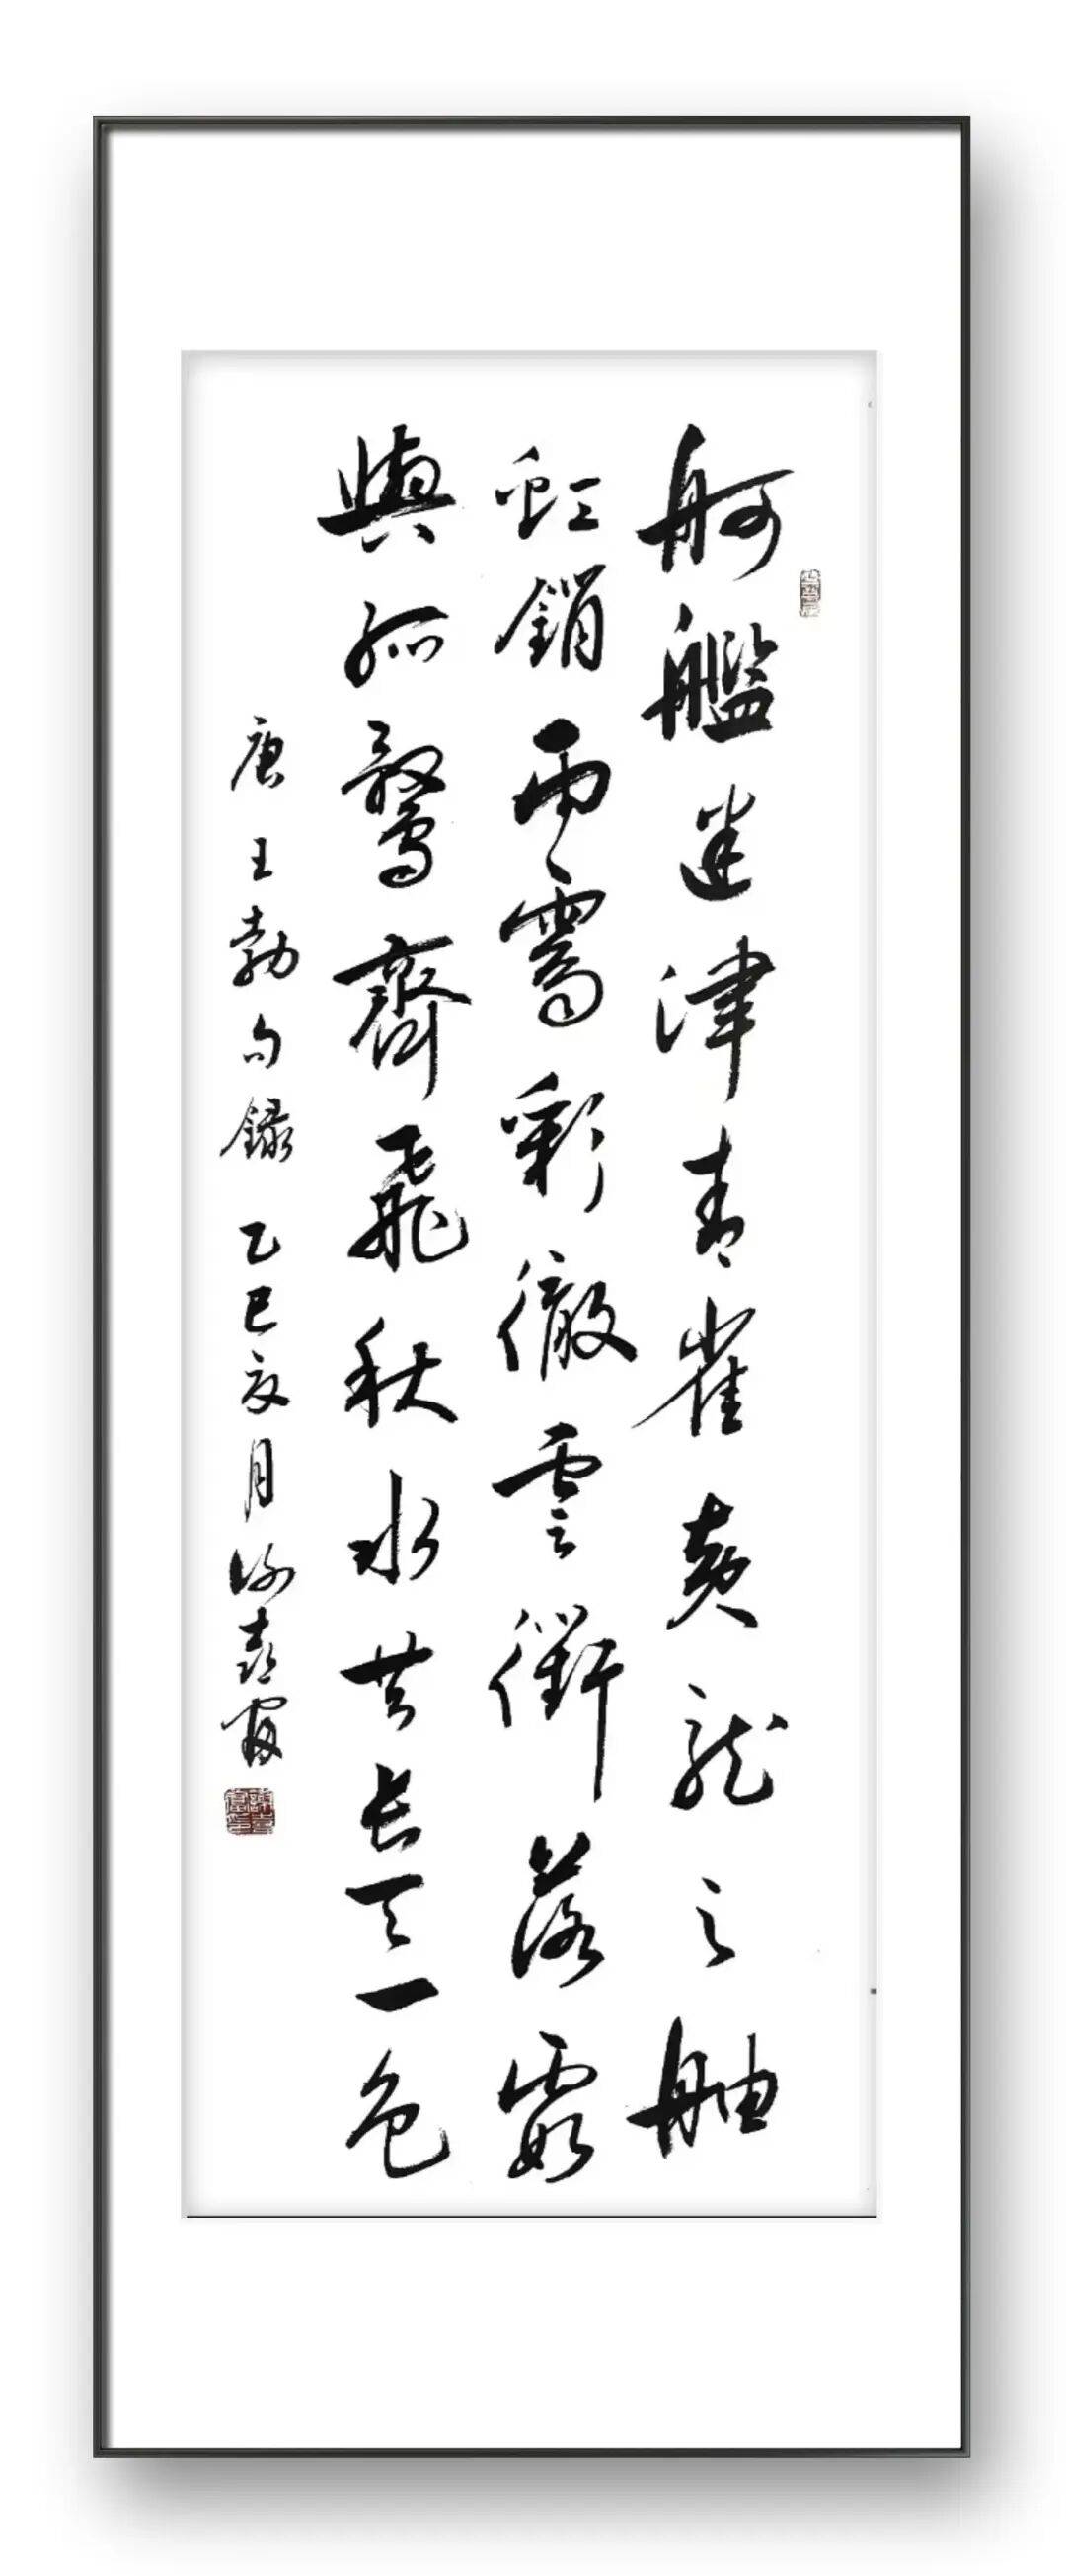 舸艦迷津青雀黄龍之舳
虹銷雨霽彩徹雲衢落霞
與孤鶩齊飛秋水共長天一色
唐王勃句錄 乙巳夏月